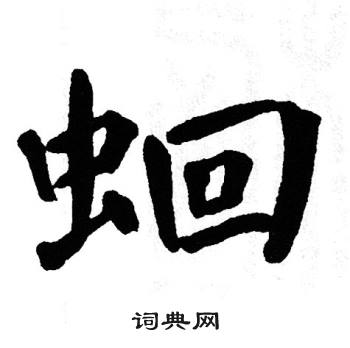 蛔
词典网